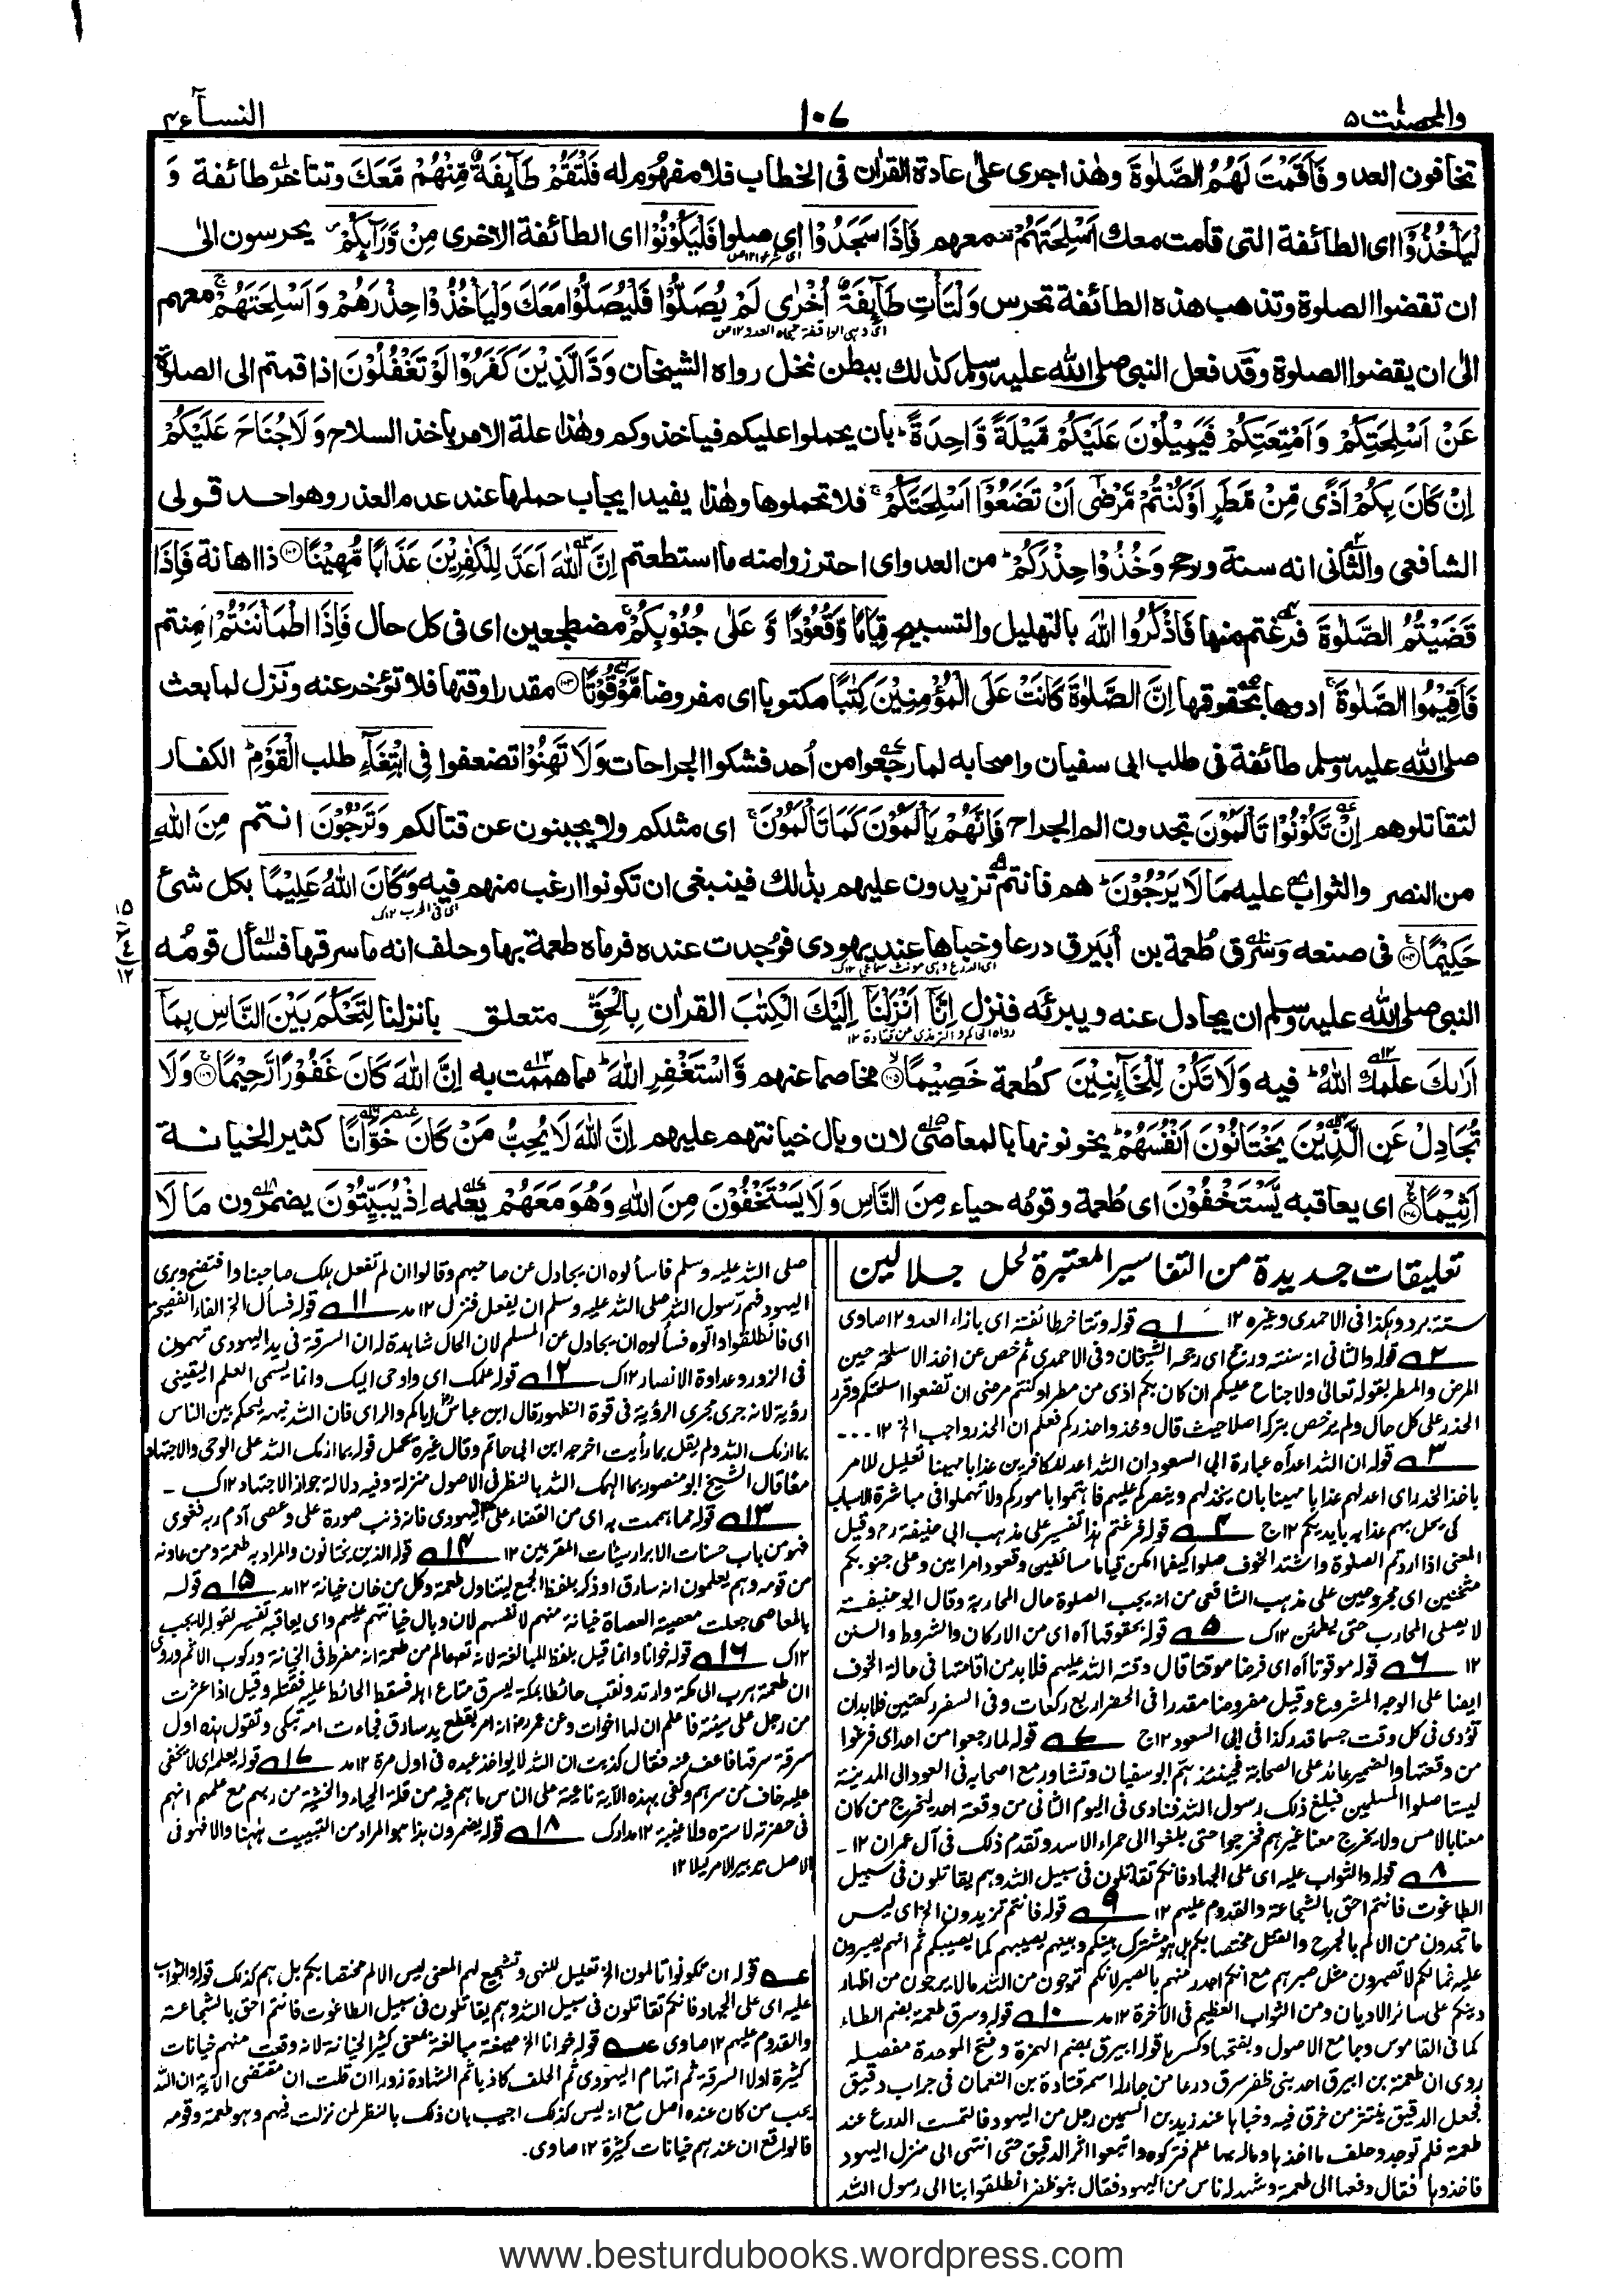 والمحصنٰت ۵
١٠٧
النسآء ۴
تخافون العدو فَاَقَمْتَ لَهُمُ الصَّلٰوةَ وهٰذا جرى علىٰ عادة القراٰن فى الخطاب فلا مفهوم له فَلْتَقُمْ طَآئِفَةٌ مِّنْهُمْ مَّعَكَ وتتاخر طائفة وَ
لْيَاْخُذُوْٓا اى الطائفة التى قامت معك اَسْلِحَتَهُمْ معهم فَاِذَا سَجَدُوْا اى صلوا فَلْيَكُوْنُوْا اى الطائفة الاخرى مِنْ وَّرَآئِكُمْ يحرسون الىٰ
ان تقضوا الصلوة وتذهب هٰذه الطائفة تحرس وَلْتَاْتِ طَآئِفَةٌ اُخْرٰى لَمْ يُصَلُّوْا فَلْيُصَلُّوْا مَعَكَ وَلْيَاْخُذُوْا حِذْرَهُمْ وَاَسْلِحَتَهُمْ معهم
الىٰ ان يقضوا الصلوة وقد فعل النبى صلى الله عليه وسلم كذٰلك ببطن نخل رواه الشيخان وَدَّ الَّذِيْنَ كَفَرُوْا لَوْ تَغْفُلُوْنَ اذا قمتم الى الصلوة
عَنْ اَسْلِحَتِكُمْ وَاَمْتِعَتِكُمْ فَيَمِيْلُوْنَ عَلَيْكُمْ مَّيْلَةً وَّاحِدَةً بان يحملوا عليكم فياخذوكم وهٰذا علة الامر باخذ السلاح وَلَا جُنَاحَ عَلَيْكُمْ
اِنْ كَانَ بِكُمْ اَذًى مِّنْ مَّطَرٍ اَوْ كُنْتُمْ مَّرْضٰٓى اَنْ تَضَعُوْٓا اَسْلِحَتَكُمْ فلا تحملوها وهٰذا يفيد ايجاب حملها عند عدم العذر وهو احد قولى
الشافعى والثانى انه سنة ورجح وَخُذُوْا حِذْرَكُمْ من العدو اى احترزوا منه ما استطعتم اِنَّ اللّٰهَ اَعَدَّ لِلْكٰفِرِيْنَ عَذَابًا مُّهِيْنًا ذا اهانة فَاِذَا
قَضَيْتُمُ الصَّلٰوةَ فرغتم منها فَاذْكُرُوا اللّٰهَ بالتهليل والتسبيح قِيَامًا وَّقُعُوْدًا وَّعَلٰى جُنُوْبِكُمْ مضطجعين اى فى كل حال فَاِذَا اطْمَاْنَنْتُمْ امنتم
فَاَقِيْمُوا الصَّلٰوةَ ادوها بحقوقها اِنَّ الصَّلٰوةَ كَانَتْ عَلَى الْمُؤْمِنِيْنَ كِتٰبًا مكتوبا اى مفروضا مَّوْقُوْتًا مقدرا وقتها فلا تؤخر عنه ونزل لما بعث
صلى الله عليه وسلم طائفة فى طلب ابى سفيان واصحابه لما رجعوا من اُحد فشكوا الجراحات وَلَا تَهِنُوْا تضعفوا فِى ابْتِغَآءِ طلب الْقَوْمِ الكفار
لتقاتلوهم اِنْ تَكُوْنُوْا تَاْلَمُوْنَ تجدون الم الجراح فَاِنَّهُمْ يَاْلَمُوْنَ كَمَا تَاْلَمُوْنَ اى مثلكم ولا يجبنون عن قتالكم وَتَرْجُوْنَ انتم مِنَ اللّٰهِ
من النصر والثواب عليه مَا لَا يَرْجُوْنَ هم فانتم تزيدون عليهم بذٰلك فينبغى ان تكونوا ارغب منهم فيه وَكَانَ اللّٰهُ عَلِيْمًا بكل شئ
حَكِيْمًا فى صنعه وسرق طُعمة بن اُبَيرق درعا وخباها عند يهودى فوُجدت عنده فرماه طعمة بها وحلف انه ما سرقها فسأل قومُه
النبى صلى الله عليه وسلم ان يجادل عنه ويبرئه فنزل اِنَّآ اَنْزَلْنَآ اِلَيْكَ الْكِتٰبَ القراٰن بِالْحَقِّ متعلق بانزلنا لِتَحْكُمَ بَيْنَ النَّاسِ بِمَآ
اَرٰىكَ علمك اللّٰهُ فيه وَلَا تَكُنْ لِّلْخَآئِنِيْنَ كطعمة خَصِيْمًا مخاصما عنهم وَّاسْتَغْفِرِ اللّٰهَ مما هممت به اِنَّ اللّٰهَ كَانَ غَفُوْرًا رَّحِيْمًا وَلَا
تُجَادِلْ عَنِ الَّذِيْنَ يَخْتَانُوْنَ اَنْفُسَهُمْ يخونونها بالمعاصى لان وبال خيانتهم عليهم اِنَّ اللّٰهَ لَا يُحِبُّ مَنْ كَانَ خَوَّانًا كثير الخيانة
اَثِيْمًا اى يعاقبه يَّسْتَخْفُوْنَ اى طُعمة وقومُه حياء مِنَ النَّاسِ وَلَا يَسْتَخْفُوْنَ مِنَ اللّٰهِ وَهُوَ مَعَهُمْ يعلمه اِذْ يُبَيِّتُوْنَ يضمرون مَا لَا
تعليقات جديدة من التفاسير المعتبرة لحل جلالين
١ قوله وتتاخر طائفة اى بازاء العدو ١٢ صاوى
٢ قوله والثانى انه سنة ورجح اى رجحه الشيخان وفى الاحمدى ثم رخص عن اخذ الاسلحة حين
المرض والمطر بقوله تعالى ولا جناح عليكم ان كان بكم اذى من مطر او كنتم مرضى ان تضعوا اسلحتكم وقرر
الحذر على كل حال ولم يرخص بتركه اصلا حيث قال وخذوا حذركم فعلم ان الحذر واجب الخ ١٢
٣ قوله ان الله اعد آه عبارة ابى السعود ان الله اعد للكافرين عذابا مهينا تعليل للامر
باخذ الحذر اى اعد لهم عذابا مهينا بان يخذلهم وينصركم عليهم فاهتموا باموركم ولا تهملوا فى مباشرة الاسباب
كى يحل بهم عذابه بايديكم ١٢ ج ٤ قوله فرغتم هذا تفسير على مذهب ابى حنيفة رح وقيل
المعنى اذا اردتم الصلوة واشتد الخوف صلوا كيفما امكن قياما مسائفين وقعودا مرامين وعلى جنوبكم
مثخنين اى مجروحين على مذهب الشافعى من انه يجب الصلوة حال المحاربة وقال ابو حنيفة
لا يصلى المحارب حتى يطمئن ١٢ ك ٥ قوله بحقوقها آه اى من الاركان والشروط والسنن
١٢ ٦ قوله موقوتا آه اى فرضا موقتا قال وقته الله عليهم فلا بد من اقامتها فى حالة الخوف
ايضا على الوجه المشروع وقيل مفروضا مقدرا فى الحضر اربع ركعات وفى السفر ركعتين فلا بد ان
تؤدى فى كل وقت حسبما قدر كذا فى ابى السعود ١٢ ج ٧ قوله لما رجعوا من احد اى فرغوا
من وقعتها والضمير عائد على الصحابة فحينئذ هم ابو سفيان وتشاور مع اصحابه فى العود الى المدينة
ليستاصلوا المسلمين فبلغ ذلك رسول الله فنادى فى اليوم الثانى من وقعة احد ليخرج من كان
معنا بالامس ولا يخرج معنا غيرهم فخرجوا حتى بلغوا الى حمراء الاسد وتقدم ذلك فى آل عمران ١٢
٨ قوله والثواب عليه اى على الجهاد فانكم تقاتلون فى سبيل الله وهم يقاتلون فى سبيل
الطاغوت فانتم احق بالشجاعة والقدوم عليهم ١٢ ٩ قوله فانتم تزيدون الخ اى ليس
ما تجدون من الالم بالجرح والقتل مختصا بكم بل هو مشترك بينكم وبينهم يصيبهم كما يصيبكم ثم انهم يصبرون
عليه فما لكم لا تصبرون مثل صبرهم مع انكم اجدر منهم بالصبر لانكم ترجون من الله ما لا يرجون من اظهار
دينكم على سائر الاديان ومن الثواب العظيم فى الآخرة ١٢ مد ١٠ قوله وسرق طعمة بضم الطاء
كما فى القاموس وجامع الاصول وبفتحها وكسرها قوله ابيرق بضم الهمزة وفتح الموحدة مفصله
روى ان طعمة بن ابيرق احد بنى ظفر سرق درعا من جار له اسمه قتادة بن النعمان فى جراب دقيق
فجعل الدقيق ينتثر من خرق فيه وخباها عند زيد بن السمين رجل من اليهود فالتمست الدرع عند
طعمة فلم توجد وحلف ما اخذها وماله بها علم فتركوه واتبعوا اثر الدقيق حتى انتهى الى منزل اليهود
فاخذوها فقال دفعها الى طعمة وشهد له ناس من اليهود فقال بنو ظفر انطلقوا بنا الى رسول الله
صلى الله عليه وسلم فاسألوه ان يجادل عن صاحبهم وقالوا ان لم تفعل هلك صاحبنا وافتضح وبرى
اليهود فهم رسول الله صلى الله عليه وسلم ان يفعل فنزل ١٢ مد ١١ قوله فسأل الخ الفاء الفصيحة
اى فانطلقوا واتوه فسألوه ان يجادل عن المسلم لان الحال شاهدة له ان السرقة فى يد اليهودى تهمون
فى الزور وعداوة الانصار ١٢ ك ١٢ قوله علمك اى واوحى اليك وانما يسمى العلم اليقينى
رؤية لانه جرى مجرى الرؤية فى قوة الظهور قال ابن عباس اياكم والراى فان الله نبيه يحكم بين الناس
بما اراك الله ولم يقل بما رأيت اخرجه ابن ابى حاتم وقال غيره يحمل قوله بما اراك الله على الوحى والاجتهاد
معا قال الشيخ ابو منصور بما الهمك الله بالنظر فى الاصول منزلة وفيه دلالة جواز الاجتهاد ١٢ ك
١٣ قوله مما هممت به اى من القضاء على اليهودى فانه ذنب صورة على وعصى آدم ربه فغوى
فهو من باب حسنات الابرار سيئات المقربين ١٢ ١٤ قوله الذين يختانون والمراد به طعمة ومن عاونه
من قومه وهم يعلمون انه سارق او ذكر بلفظ الجمع ليتناول طعمة وكل من خان خيانة ١٢ مد ١٥ قوله
بالمعاصى جعلت معصية العصاة خيانة منهم لانفسهم لان وبال خيانتهم عليهم واى يعاقبه تفسير لقوله لا يحب
١٢ ك ١٦ قوله خوانا وانما قيل بلفظ المبالغة لانه تعالى عالم من طعمة انه مفرط فى الخيانة وركوب الاثم وروى
ان طعمة هرب الى مكة وارتد ونقب حائطا بمكة ليسرق متاع اهله فسقط الحائط عليه فقتله وقيل اذا عثرت
من رجل على سيئة فاعلم ان لها اخوات وعن عمر رض انه امر بقطع يد سارق فجاءت امه تبكى وتقول هذه اول
سرقة سرقها فاعف عنه فقال كذبت ان الله لا يواخذ عبده فى اول مرة ١٢ مد ١٧ قوله يعلمه اى لا يخفى
عليه خاف من سرهم وكفى بهذه الآية ناعية على الناس ما هم فيه من قلة الحياء والخشية من ربهم مع علمهم انهم
فى حضرته لا سترة ولا غيبة ١٢ مدارك ١٨ قوله يضمرون هذا هو المراد من التبييت ههنا والا فهو فى
الاصل تدبير الامر ليلا ١٢
عه قوله ان تكونوا تالمون الخ تعليل للنهى وتشجيع لهم المعنى ليس الالم مختصا بكم بل هم كذلك قوله والثواب
عليه اى على الجهاد فانكم تقاتلون فى سبيل الله وهم يقاتلون فى سبيل الطاغوت فانتم احق بالشجاعة
والقدوم عليهم ١٢ صاوى عه قوله خوانا الخ صيغة مبالغة بمعنى كثير الخيانة لانه وقعت منهم خيانات
كثيرة اولا السرقة ثم اتهام اليهودى ثم الحلف كاذبا ثم الشهادة زورا ان قلت ان مقتضى الآية ان الله
يحب من كان عنده اصل مع انه ليس كذلك اجيب بان ذلك بالنظر لمن نزلت فيهم وهو طعمة وقومه
فالواقع ان عندهم خيانات كثيرة ١٢ صاوى.
www.besturdubooks.wordpress.com